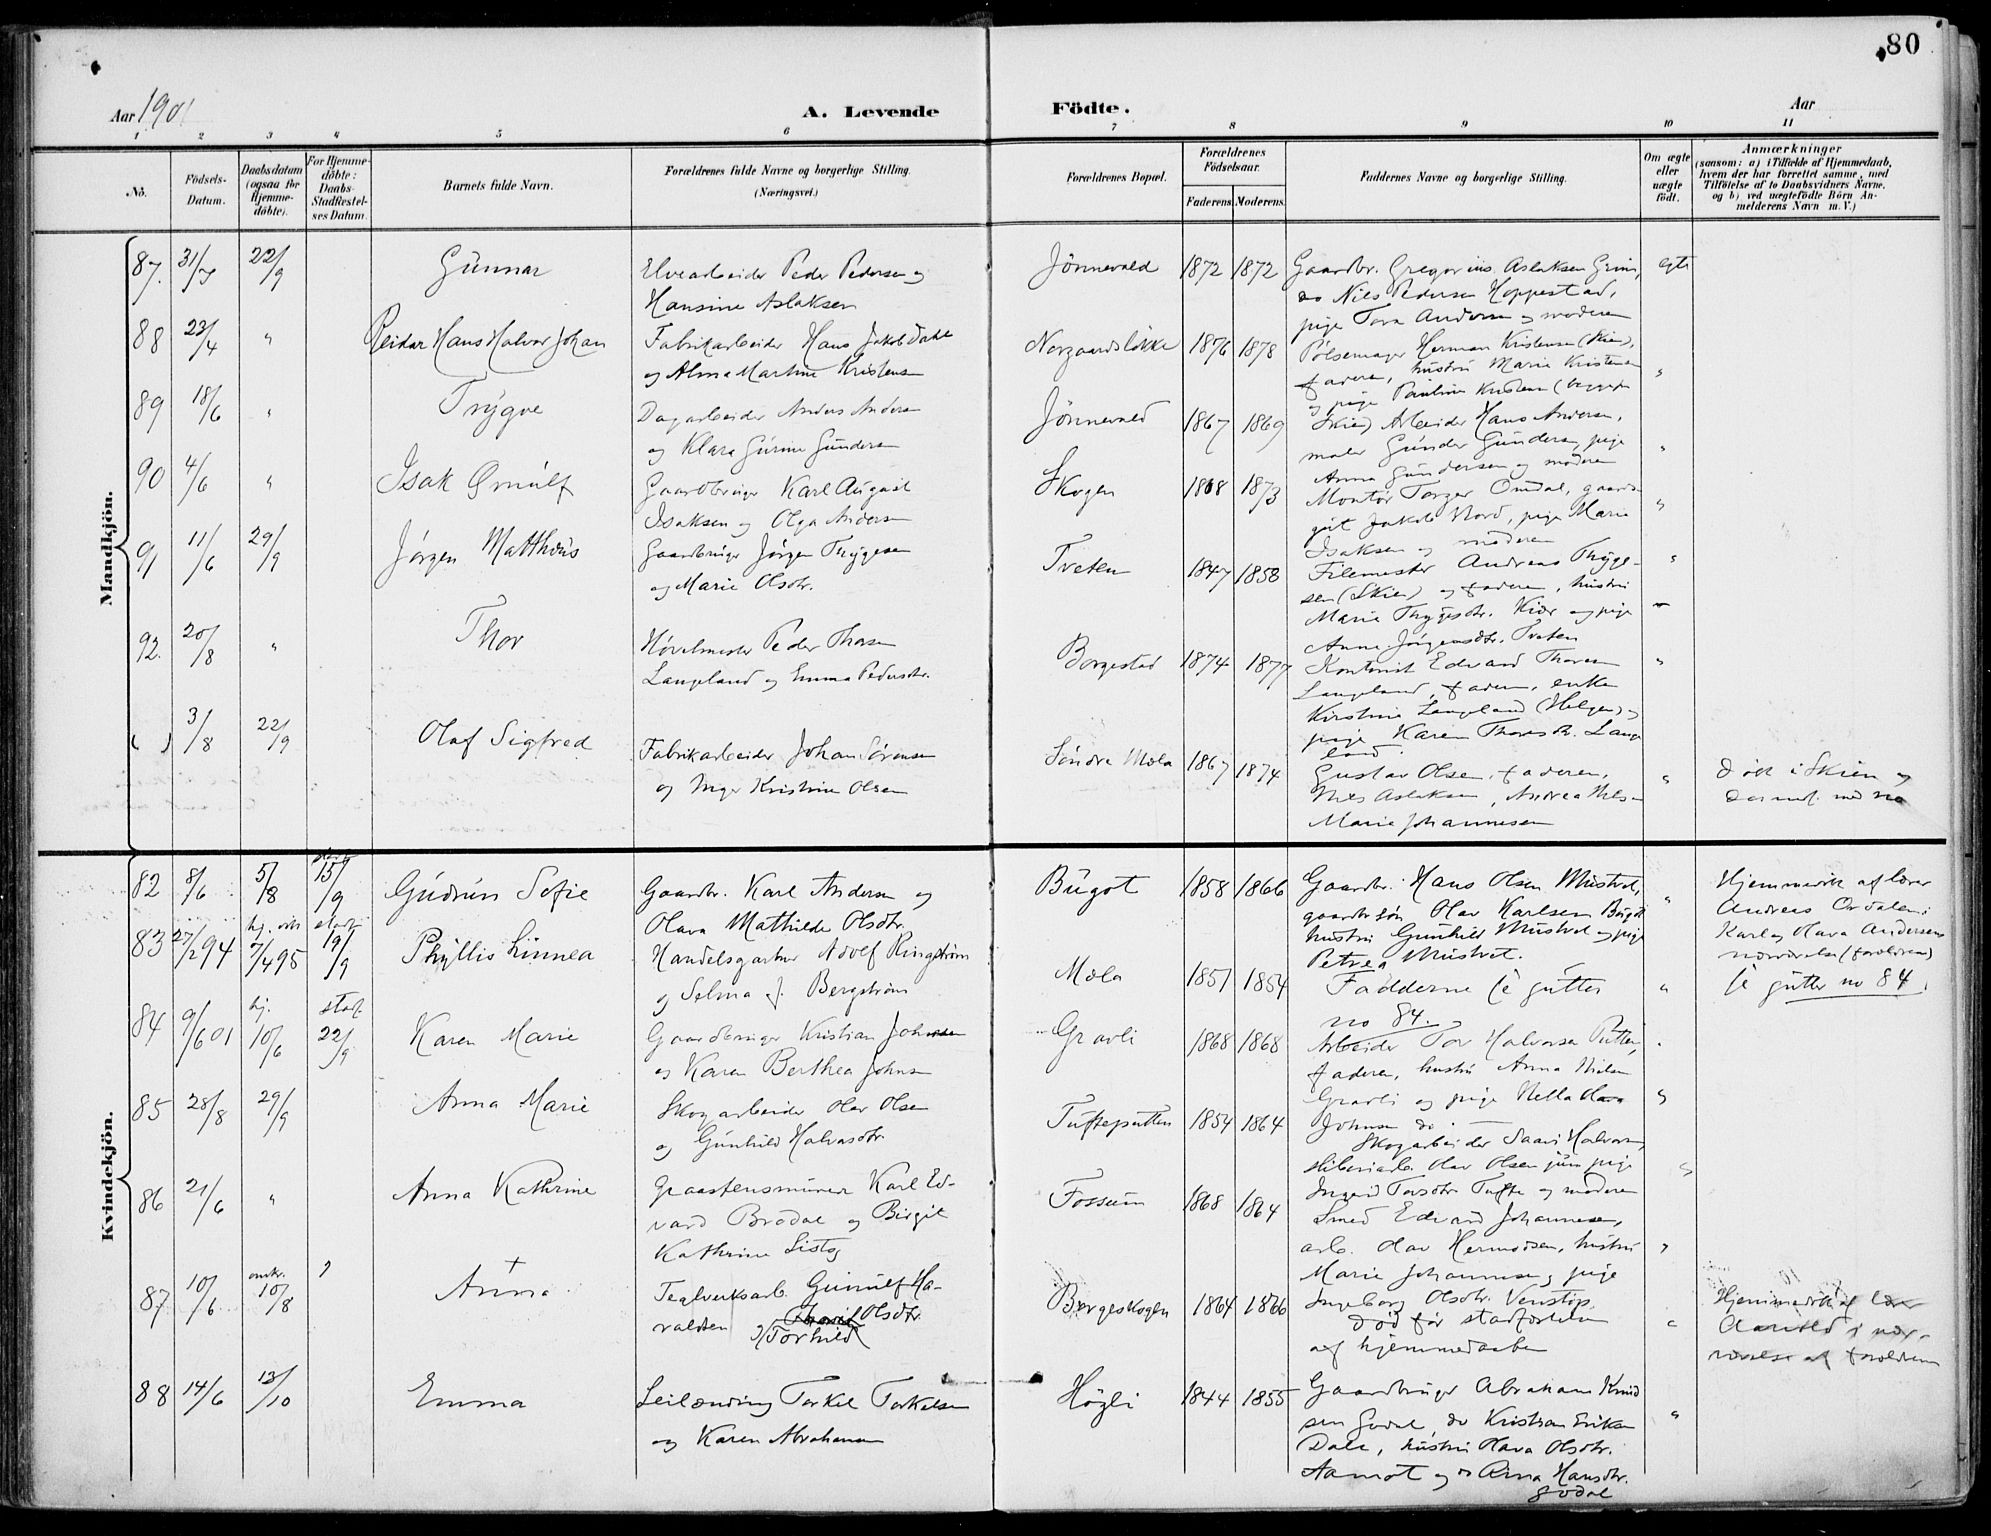 80
Aar 1901
A. Levende
Födte.
Aar
1 2 3 4 5 6 7 8 9 10 11
No.
Födsels-
Datum.
Daabsdatum
(ogsaa for
Hjemme-
döbte).
For Hjemme-
döbte:
Daabs-
Stadfæstel-
ses Datum.
Barnets fulde Navn.
Forældrenes fulde Navne og borgerlige Stilling.
(Næringsvei.)
Forældrenes Bopæl.
Forældrenes
Födselsaar.
Faderens. Moderens.
Faddernes Navne og borgerlige Stilling.
Om ægte
eller
uægte
födt.
Anmærkninger
(saasom: a) i Tilfælde af Hjemmedaab,
hvem der har forrettet samme, med
Tilföielse af to Daabsvidners Navne,
og b) ved uægtefödte Börn An-
melderens Navn m. V.)
Mandkjön.
87. 31/7 22/9 Gunnar
Elvearbeider Peder Pedersen og
Hansine Aslaksen
Jönnevald 1872 1872
Gaardbr. Gregorius Aslaksen Grini,
do Nils Pedersen Hoppestad,
pige Tora Andersen og moderen
egte
88 23/4 " Reidar Hans Halvor Johan
Fabrikarbeider Hans Jakob Dahl
og Alma Martine Kristensen
Norgaardsløkka 1876 1878
Pølsemager Herman Kristensen (Skien),
faderen, hustru Marie Kristensen
og pige Pauline Kristensen (begge
"
89 18/6 " Trygve
Dagarbeider Anders Andersen
og Klara Gurine Gundersen
Jönnevald 1867 1869
Skien) Arbeider Hans Andersen,
maler Gunder Gundersen, pige
Anna Gundersen og moderen
"
90 4/6 " Isak Ørnulf
Gaardbruger Karl August
Isaksen og Olga Andersen
Skogen 1868 1873
Montör Torger Omdal, gaard-
gut Jakob Nord, pige Marie
Isaksen og moderen
"
91 11/6 29/9 Jørgen Matthæus
Gaardbruger Jørgen Thygesen
og Marie Olsdtr.
Tveten 1847 1858
Filemester Andreas Thyge-
sen (Skien) og faderen, hustru
Marie Thygesdtr. Kiær og pige
Anne Jörgensdtr. Tveten
"
92. 20/8 " Thor
Høvelmester Peder Thorsen
Langeland og Emma Pedersdtr.
Borgestad 1874 1877
Kontorist Edvard Thorsen
Langeland, faderen, enke
Kirstine Langeland (Helgen) og
pige Karen Thorsdtr. Lange
land.
"
( ) 3/8 22/9 Olaf Sigfred
Fabrikarbeider Johan Sörensen
og Inger Kristine Olsen
Söndre Mæla 1867 1874
Gustav Olsen, faderen,
Nils Aslaksen, Andrea Nilsen
Marie Johannesen
"
Födt i Skien og
der indf. med no
Kvindekjön.
82 8/6 5/8 15/9 Gudrun Sofie
Gaardbr. Karl Andersen og
Olava Mathilde Olsdtr.
Bugot 1858 1866
Gaardbr. Hans Olsen Mustvet,
gaardbr.søn Olav Karlsen Bugot
hustru Gunhild Mustvet og pige
Petrea Mustvet.
"
Hjemmedöbt af lærer
Andreas Ordalen i
Karl og Olava Andersens
nærværelse (forældrene)
83 27/2 94 7/4 95 stadf. 19/9 Phyllis Linnea
Handelsgartner Adolf Ringström
og Selma J. Bergström
Mæla 1851 1854
Fadderne se gutter
no 84.
"
se gutter no 84.
84 9/6 01 hj. 10/6 stadf. 22/9 Karen Marie
Gaardbruger Kristian Johnsen
og Karen Berthea Johnsen
Gravli 1868 1868
Arbeider Tor Halvorsen Putten,
faderen, hustru Anna Nilsen
Gravli og pige Hella Olava
Johnsen do.
"
85 28/8 29/9 Anna Marie
Skogarbeider Olav Olsen
og Gunhild Halvorsdtr.
Tufteputten 1854 1864
Skogarbeider Halvorsen,
sliberiarb. Olav Olsen jun, pige
Ingerid Torsdtr. Tufte og moderen
"
86 21/6 " Anna Kathrine
Graastensmurer Karl Ed-
vard Brodal og Birgit
Kathrine
Fossum 1868 1864
Smed Edvard Johannesen,
arb. Olav Hermodsen, hustru
Marie Johannesen, pige
Ingeborg Olsdtr. Venstöp.
"
87 10/6 omkr. 10/8 Anna +
Teglverksarb. Gunnulf Ha-
raldsen og Torhild Olsdtr.
Bergeskogen 1864 1866
död før stadfæstelsen
af hjemmedaaben
"
Hjemmedöbt af lærer
i nær-
værelse af forældrene
88 14/6 13/10 Emma
Leilænding Torkel Torkelsen
og Karen Abrahamsen
Högli 1844 1855
Gaardbruger Abraham Knud
sen Godal, do Kristian Eriksen
Dale, hustru Olava Olsdtr.
Aamot og do Anna Hansdtr.
Godal
"